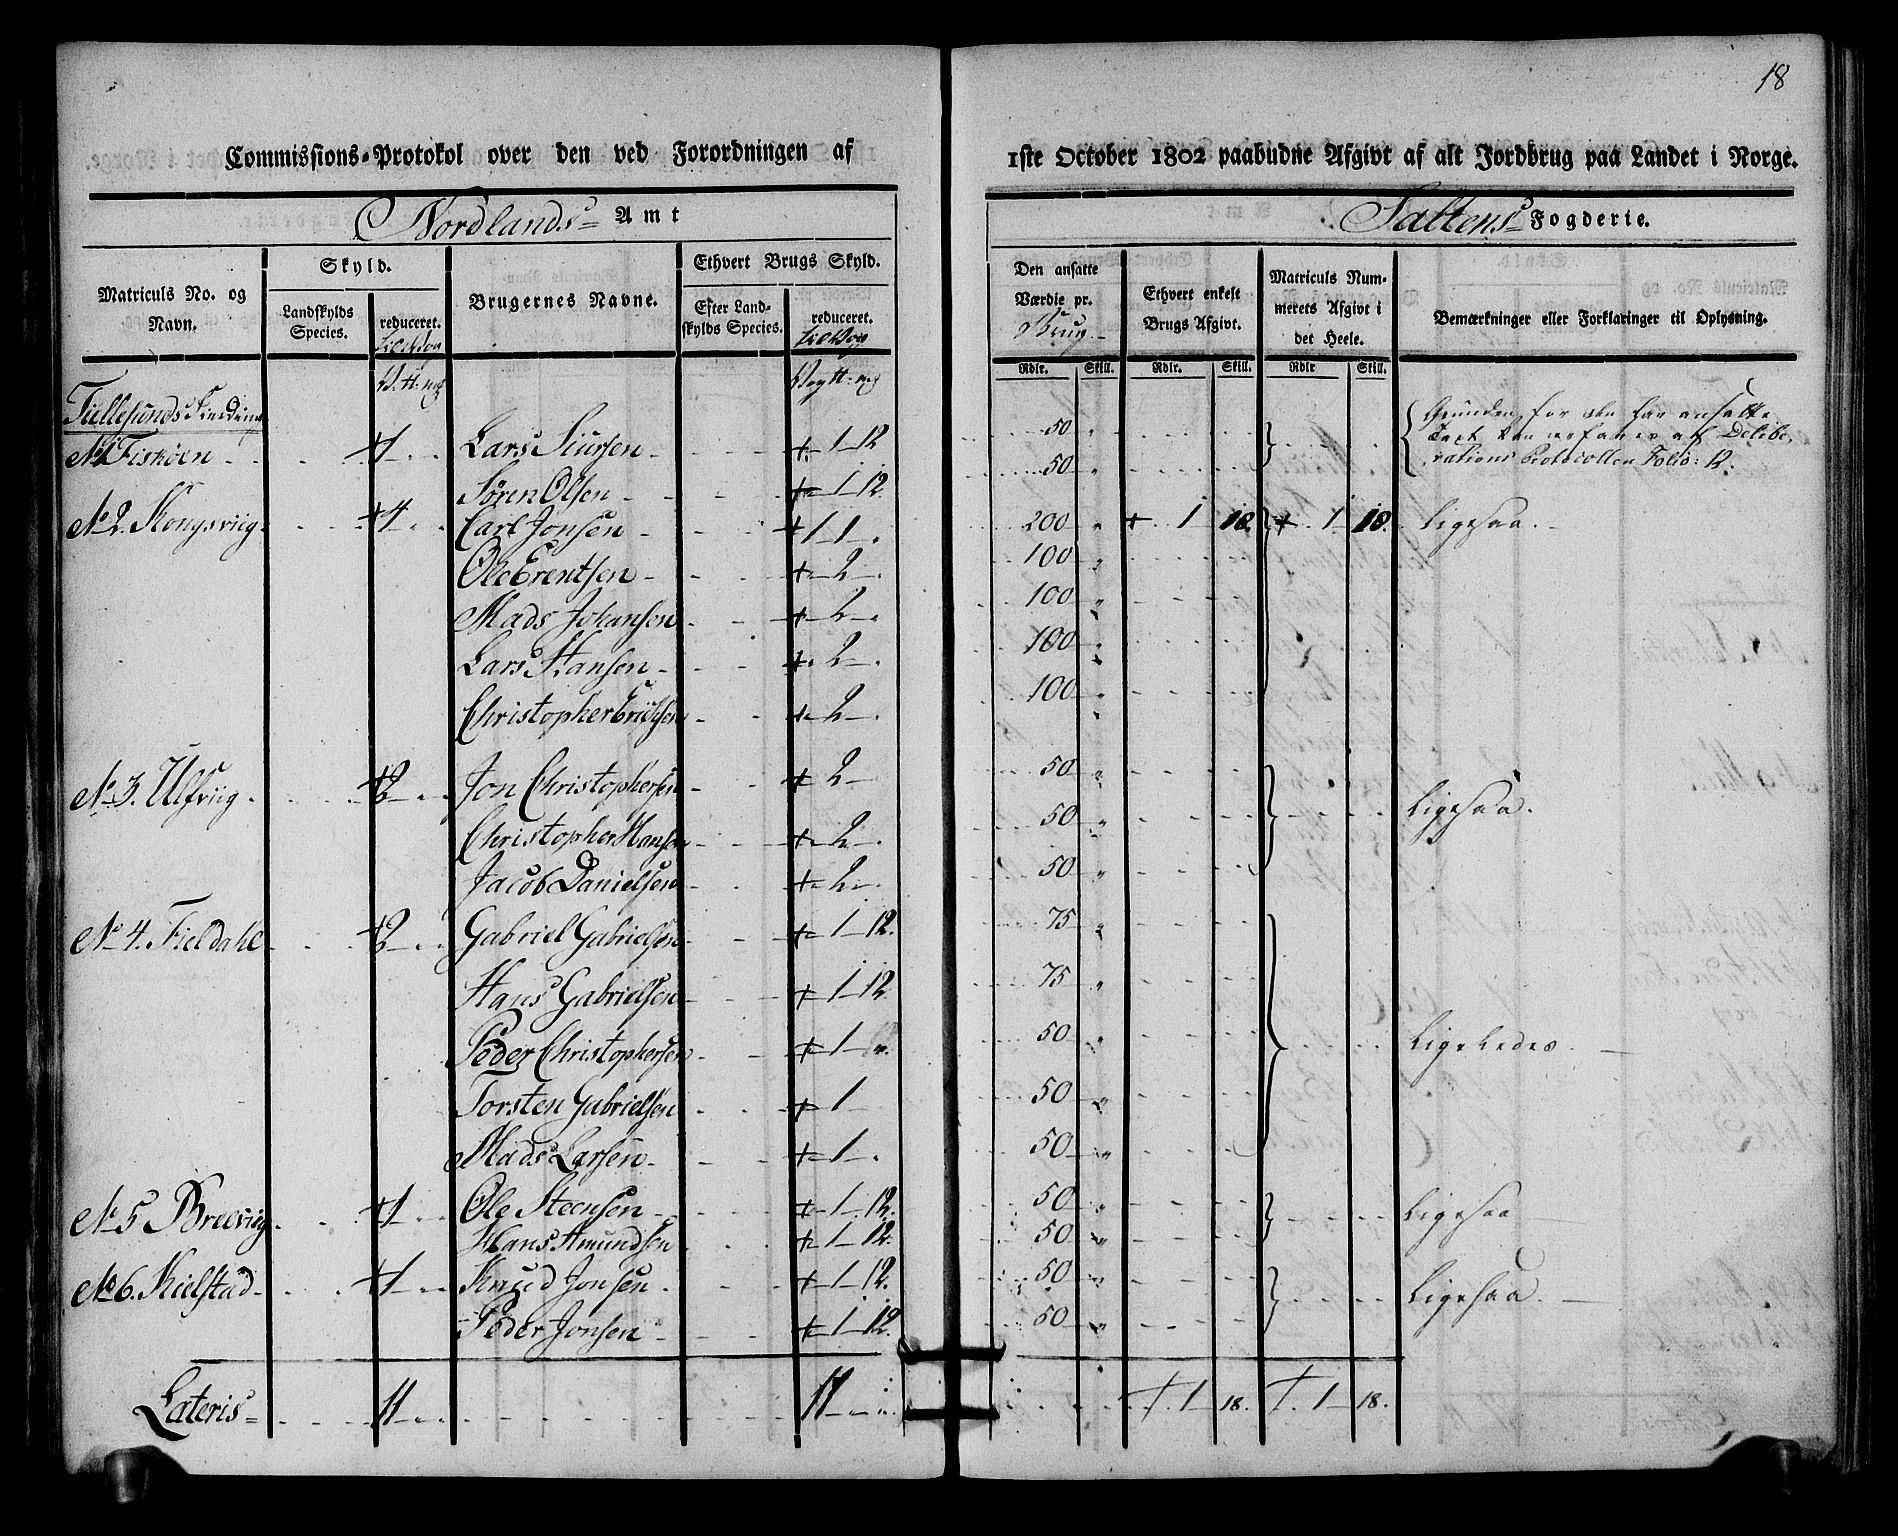 18
Commissions-Protokol over den ved Forordningen af 1ste October 1802 paabudne Afgivt af alt Jordbrug paa Landet i Norge.
Nordlands Amt
Saltens Fogderie.
Matriculs No. og Navn.
Skyld.
Landskylds Species.
reduceret.
Brugernes Navne.
Ethvert Brugs Skyld.
Efter Landskylds Species.
reduceret.
Den ansatte Værdie pr. Brug
Ethvert enkelt Brugs Afgivt.
Matriculs Nummerets Afgivt i det Heele.
Bemærkninger eller Forklaringer til Oplysning.
Rdlr. Skill. Rdlr. Skill. Rdlr Skill.
Tiellesunds Fierding
No 1 Fiskøen 1 Lars Siursen 1 12 50
Grunden for den her ansatte
Taxt kan erfares af Delibe-
rations Protocollen Folio: 12.
Søren Olsen 1 12 50
No 2. Kongsviig 4 Carl Jonsen 1 1 200 1 18 1 18. Ligesaa.
Ole Erentsen 2 100
Mads Johansen 2 100
Lars Hansen 2 100
Christopher Erichsen 2 100
No 3. Ulfviig 2 Jon Christophersen 2 50 Ligesaa.
Christopher Hansen 2 50
Jacob Danielsen 2 50
No 4. Fieldahl 2 Gabriel Gabrielsen 1 12. 75
Hans Gabrielsen 1 12 75
Peder Christophersen 1 50 Ligeledes
Torsten Gabrielsen 1 50
Mads Larsen 1 50
No 5 Breeviig 1 Ole Steensen 1 12. 50 Ligesaa
Hans Amundsen 1 12. 50
No 6. Kielstad 1 Knud Jonsen 1 12. 50 Ligesaa
Peder Jonsen 1 12. 50
Lateris 11 11 1 18. 1 18.